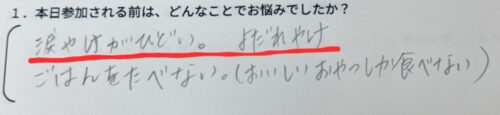 1．本日参加される前は、どんなことでお悩みでしたか？
涙やけがひどい。 よだれやけ
ごはんをたべない。(おいしいおやつしか食べない)